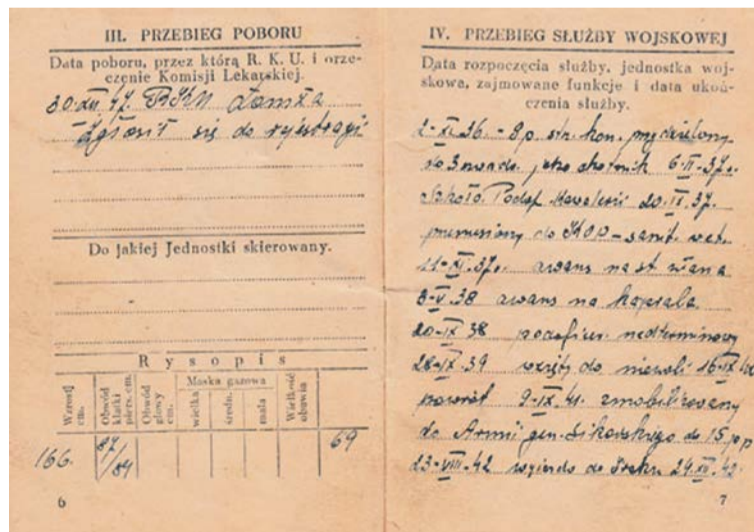 III. PRZEBIEG POBORU
Data poboru, przez którą R. K. U. i orze-
czenie Komisji Lekarskiej.
30.XII.47. RKU Łomża
zgłosił się do rejestracji
Do jakiej Jednostki skierowany.
Rysopis
Wzrost cm.
Obwód klatki piers. cm.
Obwód głowy cm.
Maska gazowa
wielka
średn.
mała
Wielkość obuwia
166.
87/84
69
6
IV. PRZEBIEG SŁUŻBY WOJSKOWEJ
Data rozpoczęcia służby, jednostka woj-
skowa, zajmowane funkcje i data ukoń-
czenia służby.
2-XI.36. - 8 p. str. kon. przydzielony
do 3 szwadr. jako ochotnik 6.II-37r.
Szkoła Podof. Kawalerii 20.IX.37.
przeniesiony do KOP - sanit. wet.
11-XI.37r. awans na st. ułana
3-V.38 awans na kaprala
20-IX 38 podoficer nadterminowy
28-IX.39 wzięty do niewoli 16-IX
powrót 9-IX.41. zmobilizowany
do Armii gen. Sikorskiego do 15 p p
23-VIII-42 wyjazd do Iraku 24.XII.42.
7